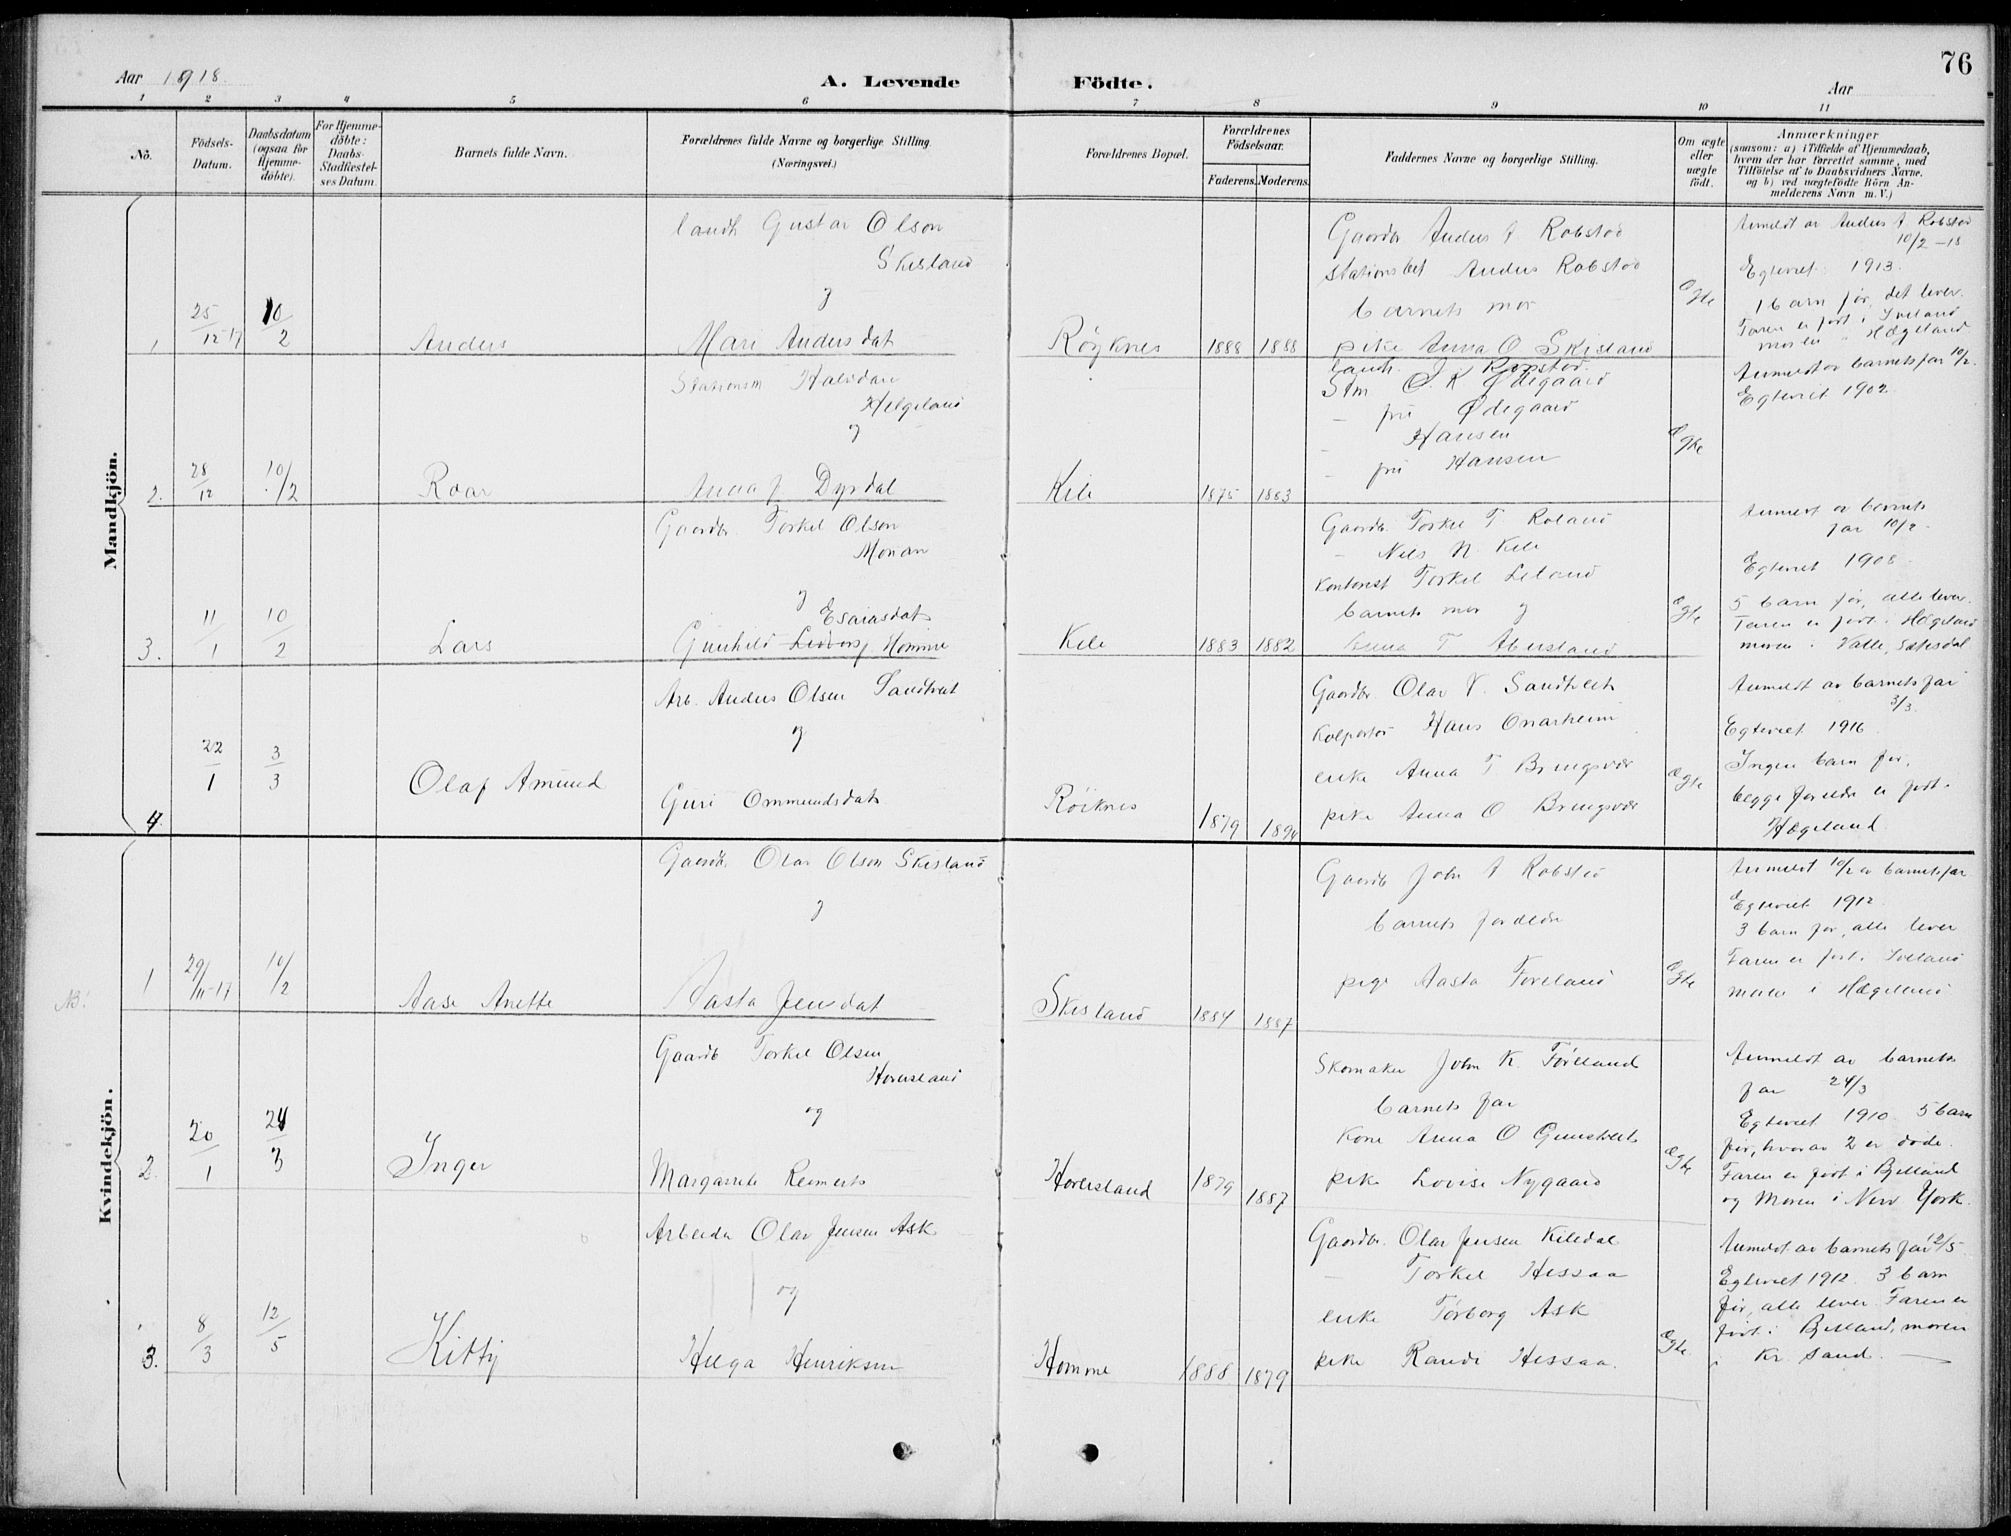 76
Aar 1918.
A. Levende Födte.
Aar
1 2 3 4 5 6 7 8 9 10 11
No.
Födsels-Datum.
Daabsdatum (ogsaa for Hjemme-döbte).
For Hjemme-döbte: Daabs-Stadfæstel-ses Datum.
Barnets fulde Navn.
Forældrenes fulde Navne og borgerlige Stilling.
(Næringsvei.)
Forældrenes Bopæl.
Forældrenes Födselsaar.
Faderens. Moderens.
Faddernes Navne og borgerlige Stilling.
Om ægte eller uægte födt.
Anmærkninger
(saasom: a) i Tilfælde af Hjemmedaab, hvem der har forrettet samme, med Tilföielse af to Daabsvidners Navne, og b) ved uægtefödte Börn An-melderens Navn m. V.)
Mandkjön.
1 25/12-17 10/2 Anders
Gustav Olson
Skisland
og
Mari Andersdat
Röyknes 1888 1888
Gaardbr Anders A Robstad
Anders Robstad
barnets mor
pike Anna O Skisland
J. Robstad
ægte
Anmeldt av Anders A Robstad
10/2-18
Egteviet 1913.
1 barn før, det lever.
Faren er født i Iveland
moren " Hægeland
2. 28/12 10/2 Roar
Stationsm Halvdan
Helgeland
og
Anna J Dyrdal
Kile 1875 1883
Stm O. K Ødegaard
- fru Ødegaard
- Hansen
- fru Hansen
ægte
Anmeldt av barnets far 10/2.
Egteviet 1902
3. 11/1 10/2 Lars
Gaardbr. Torkel Olson
og
Esaiasdat
Gunhild Homme
Kile 1883 1882
Gaardbr. Torkel T. Roland
- Nels N. Kile
Kontorist Torkel
barnets mor og
Anna T
ægte
Anmeldt av barnets
far 10/2.
Egteviet 1908.
5 barn før, alle lever.
Faren er født i Hægeland
moren i Valle, Sætesdal
4. 22/1 3/3 Olaf Amund
Arb. Anders Olsen Sandtveit
og
Guri Ommundsdat
Röiknes 1879 1894
Gaardbr. Olav V. Sandtveit
Kolportør Hans Onarheim
enke Anna T Bringsvær
pike Anna O Bringsvær
ægte
Anmeldt av barnets far
3/3.
Egteviet 1916
Ingen barn før,
begge foreldre er født i
Hægeland
Kvindekjön.
NB!
1 29/11-17 10/2 Aase Anette
Gaardb. Olav Olson Skisland
og
Aasta Jensdat
Skisland 1884 1887
Gaardb John A Robstad
barnets foreldre
pige Aasta Foreland
ægte
Anmeldt 10/2 av barnets far
Egteviet 1912
3 barn før, alle lever
Faren er født i Iveland
moren i Hægeland
2. 20/1 24/3 Inger
Gaardb Torkel Olsen
Hoversland
og
Margarete Reimerts
Hoversland 1879 1887
Skomaker John K. Førland
barnets far
Kone Anna O
pike Lovise Nygaard
ægte
Anmeldt av barnets
far 24/3
Egteviet 1910 5 barn
før, hvorav 2 er døde.
Faren er født i Bjelland
og Moren i New York.
3. 8/3 12/5 Kitty
Arbeider Olav Jensen Ask
og
Helga Henriksen
Homme 1888 1879
Gaardbr. Olav Jensen Kiledal
- Torkel Hessaa
enke Torborg Ask
pike Randi Hessaa.
ægte.
Anmeldt av barnets far 12/5
Egteviet 1912. 3 barn
før, alle lever. Faren er
født i Bjelland, moren
i Kr. sand.